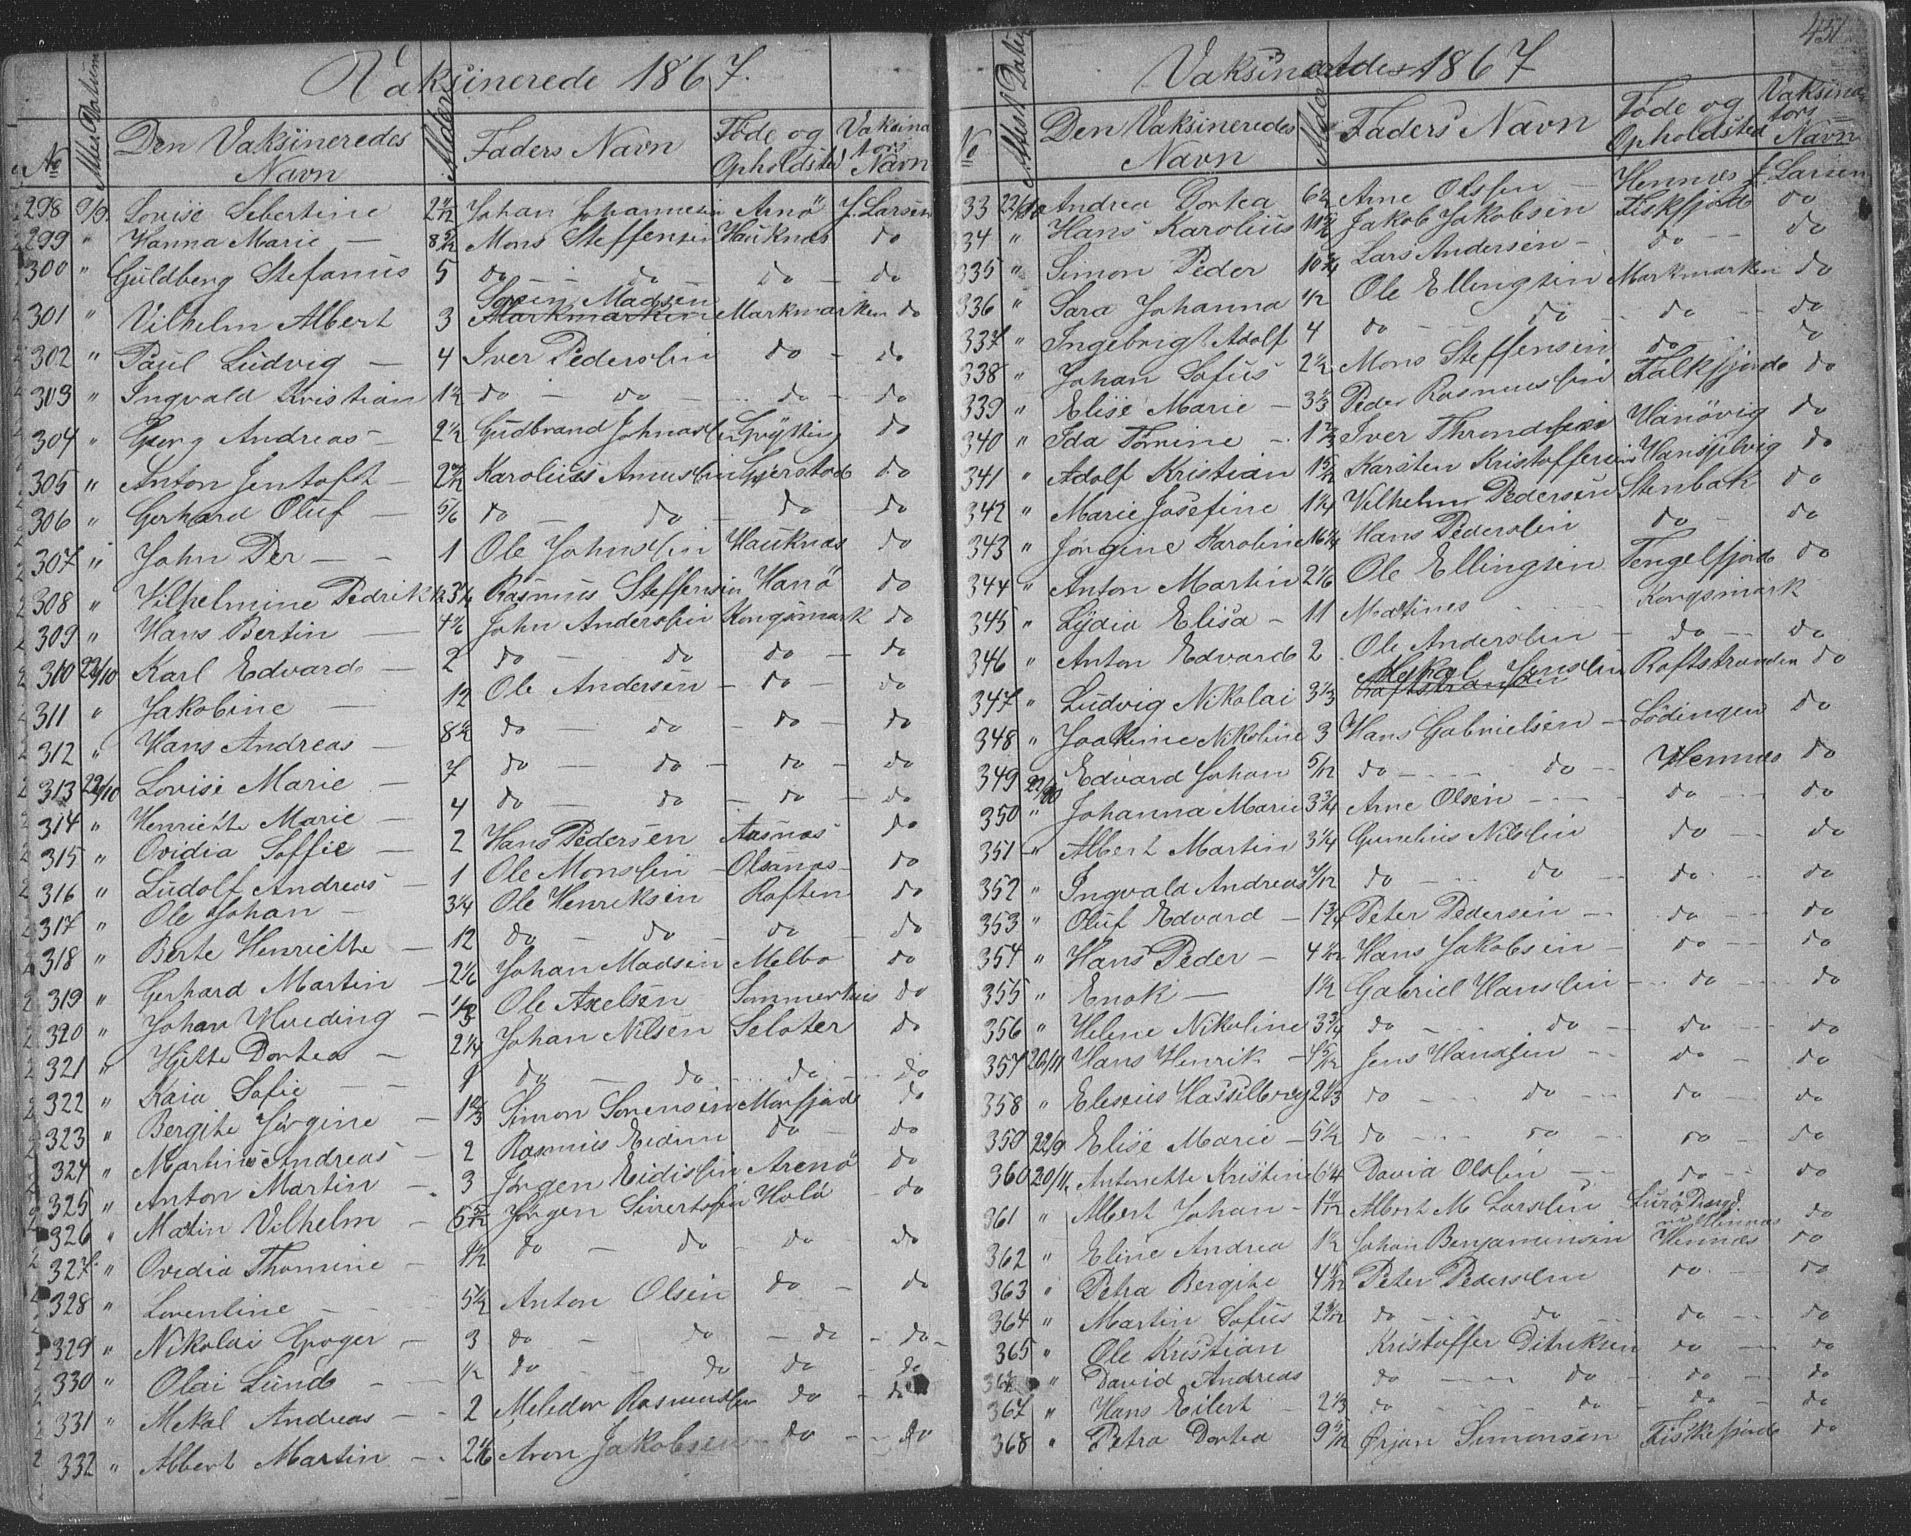 Vaksinerede 1867.
No Attest. Datum Den Vaksineredes Navn Alder Faders Navn Føde og Opholdsted Vaksinators Navn
298 9/9 Lovise Sebertine 2 1/12 Johan Johannesen Arnö J. Larsen
299 " Hanna Marie — 8 5/12 Mons Steffensen Hauknæs do
300 " Guldberg Stefanus 5 do — do do — do
301 " Vilhelm Albert 3 Søren Madsen Markmarken do
302 " Paul Ludvig — 4 Iver Pederssen do — do
303 " Ingvald Kristian 1 1/2 do — do — do — do
304 " Georg Andreas — 2 1/2 Gudbrand Johnassen Grytting do
305 " Anton Jentoft — Karolius Amussen do
306 " Gerhard Oluf — 5/6 do — do — do do
307 " John Per — 1 Ole Johnssen Hauknæs do
308 " Vilhelmine Pedrikka 3 1/4 Rasmus Steffensen Hanö do
309 " Hans Bertin — John Anderssen Kongsmark do
310 22/10 Karl Edvard — 2 do — do do — do
311 " Jakobine — 12 Ole Andersen — do — do
312 " Hans Andreas — 8 1/2 do — do — do — do
313 22/10 Lovise Marie — 7 do — do — do — do
314 " Henriette Marie — 4 do — do — do — do
315 " Ovidia Soffie — 2 Hans Pedersen Aasnæs do
316 " Ludolf Andreas — 1 Ole Monssen Olsanæs do
317 " Ole Johan — 3 1/4 Ole Henriksen Raften do
318 " Berte Henriette — 12 do — do — do — do
319 " Gerhard Martin — 2 1/6 Johan Madsen Melbo do
320 " Johan Hveding — 1/3 Ole Axelsen Sommerhus do
321 " Hjette Dortea — 2 1/4 Johan Nilsen Seloter do
322 " Kaia Sofie — 1 do — do — do — do
323 " Bergite Jørgine — 1 2/3 Simon Sørensen Morfjord do
324 " Martinus Andreas — 2 Rasmus do — do
325 " Anton Martin — 3 Jørgen Eidissen Arenö do
326 " Matin Vilhelm — 5 5/12 Jørgen Sivertssen Holö — do
327 " Ovedia Thomine — 1 1/2 do — do — do — do
328 " Loventine — 5 1/2 Anton Olsen do — do
329 " Nikolai Groger — 3 do — do — do — do
330 " Olai Lund — 1/2 do — do do — do
331 " Mekal Andreas — 2 Meledor Rasmussen do — do
332 " Albert Martin — 2 1/6 Aron Jakobsen do — do
451
Vaksinerede 1867
No Attest. Datum Den Vaksineredes Navn Alder Faders Navn Føde og Opholdsted Vaksinators Navn
33 22/10 Andrea Dortea 6 1/2 Arne Olssen — Hennes J. Larsen
334 " Hans Karolius Jakob Jakobsen Fiskfjord do
335 " Simon Peder 10 3/4 Lars Andersen — do — do
336 " Sara Johanna 1/2 Ole Ellingsen Markmarken do
337 " Ingebrigt Adolf 4 do — do — do — do
338 " Johan Sofus 2 1/2 Mons Steffensen do — do
339 " Elise Marie — 3 1/3 Peder Rasmussen Falkfjord do
340 " Ida Tomine — 1 2/3 Iver Throndsen Hanövig do
341 " Adolf Kristian 1 5/12 Karsten Kristoffersen do
342 " Marie Josefine 1 1/4 Vilhelm Pedersen Stenbak do
343 " Jørgine Karoline 16 1/4 Hans Pederssen do — do
344 " Anton Martin 2 1/6 Ole Ellingsen Tengelfjord do
345 " Lydia Elisa — 11 Matines Kongsmark
346 " Anton Edvard 2 Ole Anderssen — do — do
347 " Ludvig Nikolai 3 1/3 Mekal Jenssen Raftstranden do
348 " Joakime Nikoline 3 Hans Gabrielsen — Lödingen do
349 22/10 Edvard Johan 5/12 do — do — Hennæs do
350 " Johanna Marie 3 3/4 Arne Olsen — do — do
351 " Albert Martin 3 1/4 Gunelius Nilssen do — do
352 " Ingvald Andreas 7/12 do — do — do — do
353 " Oluf Edvard — 1 3/4 Peter Pedersen — do — do
354 " Hans Peder — 4 1/12 Hans Jakobsen — do — do
355 " Enok — 1 1/2 Gabriel Hanssen — do — do
356 " Helene Nikoline 3 3/4 do — do — do — do
357 20/11 Hans Henrik — 4 5/12 Jens Handsen — do — do
358 " Eliseus Hasselberg 2 1/3 do — do — do — do
359 22/9 Elise Marie — 5 1/2 do — do — do — do
360 20/11 Antonette Kristine 6 1/4 David Olssen — do — do
361 " Albert Johan — Albert M. Larssen Lurø Hennæs do
362 " Eline Andrea 1 1/2 Johan Benjaminsen Hennæs do
363 " Petra Bergite Peter Pederssen do — do
364 " Martin Sofus do — do — do — do
365 " Ole Kristian Kristoffer Ditriksen do — do
366 " David Andreas do — do — do — do
367 " Hans Eilert — 2 1/3 do — do — do — do
368 " Petra Dortea Ørjan Simonsen Fiskefjord do